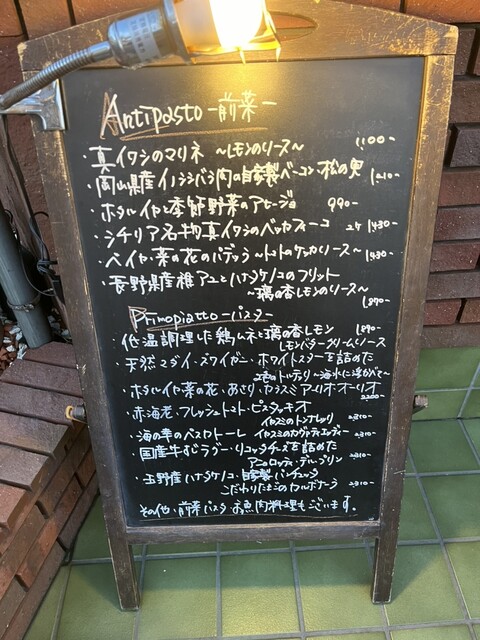 Antipasto -前菜-
・真イワシのマリネ ～レモンのソース～ 1100-
・岡山県産イノシシバラ肉の自家製ベーコン・松の実 1210-
・ホタルイカと季節野菜のアヒージョ 990-
・シチリア名物真イワシのベッカフィーコ 2ケ 1430-
・ベイカ・菜の花のパデッラ ～トマトのケッカソース～ 1430-
・長野県産稚アユとハナタケノコのフリット
～璃の香レモンのソース～
1870-
Primopiatto-パスタ-
低温調理した鶏ムネと璃の香レモン 1890-
レモンバタークリームソース
・天然マダイ・ズワイガニ・ホワイトスターを詰めた
2色のトルテッリ ～海水に浮かべて～
・ホタルイカ菜の花、あさり、カラスミアーリオオーリオ
2200-
・赤海老・フレッシュトマト・ピスタッキオ
イカスミのトンナレッリ 2310-
・海の幸のペスカトーレ イカスミのカヴァティエッディ 2310-
・国産牛ほほラグー・リコッタチーズを詰めた
アニョロッティ・デル・プリン 2310-
・玉野産ハナタケノコ・自家製パンチェッタ
こだわりたまごのカルボナーラ 2310-
その他・前菜パスタ お魚肉料理もございます。